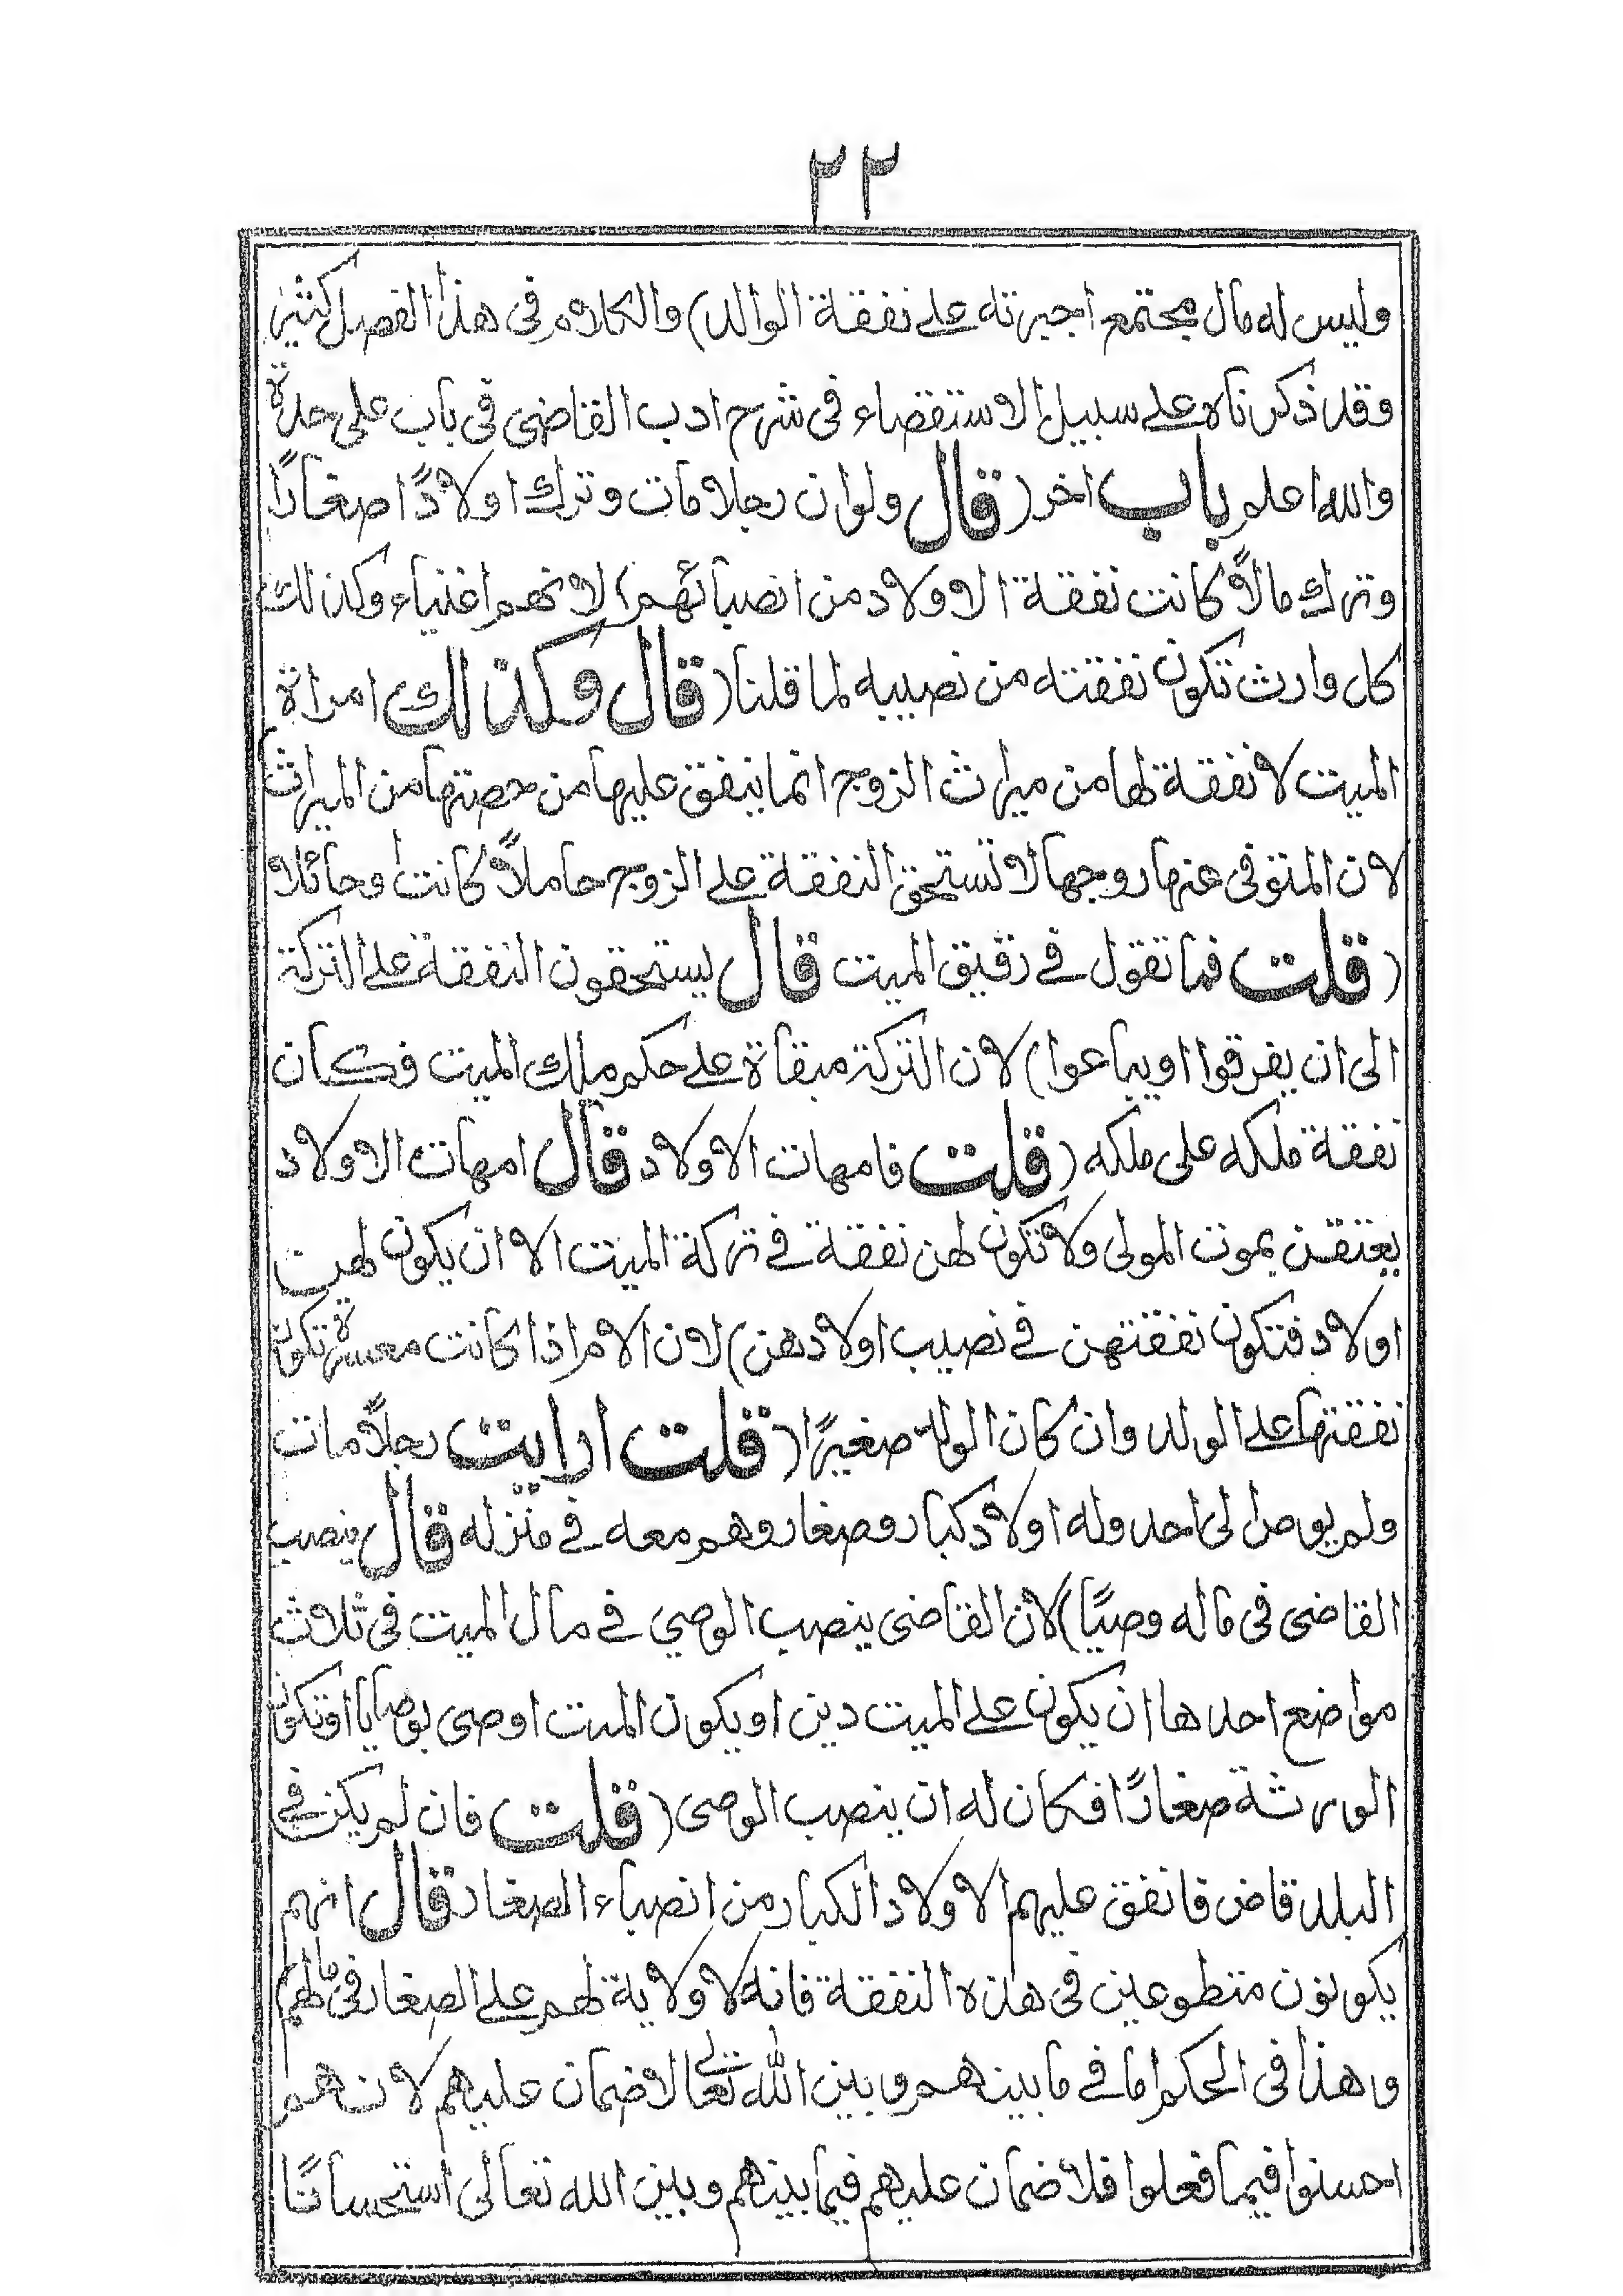 ٢٢
وليس له مال مجتمع اجبرته على نفقة الوالد) والكلام فى هذا الفصل كثير
وقد ذكرناه على سبيل الاستقصاء فى شرح ادب القاضى فى باب على حدة
والله اعلم باب اخر (قال ولو ان رجلا مات وترك اولادًا صغارًا
وترك مالاً كانت نفقة الاولاد من انصبائهم) لانهم اغنياء وكذلك
كل وارث تكون نفقته من نصيبه لما قلنا (قال وكذلك امراة
الميت لا نفقة لها من ميراث الزوج انما ينفق عليها من حصتها من الميراث)
لان المتوفى عنها زوجها لا تستحق النفقة على الزوج حاملاً كانت او حائلا
(قلت فما تقول في رقيق الميت قال يستحقون النفقة على التركة
الى ان يفرقوا او يباعوا) لان التركة مبقاة على حكم ملك الميت فكان
نفقة ملكه على ملكه (قلت فامهات الاولاد قال امهات الاولاد
يعتقن بموت المولى ولا تكون لهن نفقة في تركة الميت الا ان يكون لهن
اولاد فتكون نفقتهن في نصيب اولادهن) لان الام اذا كانت معسرة تكون
نفقتها على الولد وان كان الولد صغيرًا (قلت ارايت رجلاً مات
ولم يوص الى احد وله اولاد كبار وصغار وهم معه في منزله قال ينصب
القاضى فى ماله وصيًا) لان القاضى ينصب الوصي في مال الميت فى ثلاث
مواضع احدها ان يكون على الميت دين او يكون الميت اوصى بوصايا او تكون
الورثة صغارًا فكان له ان ينصب الوصى (قلت فان لم يكن في
البلد قاض فانفق عليهم الاولاد الكبار من انصباء الصغار قال انهم
يكونون متطوعين فى هذه النفقة فانه لا ولاية لهم على الصغار فى مالهم)
وهذا فى الحكم اما في ما بينهم وبين الله تعالى لا ضمان عليهم لانهم
احسنوا فيما فعلوا فلا ضمان عليهم فيما بينهم وبين الله تعالى استحسانًا